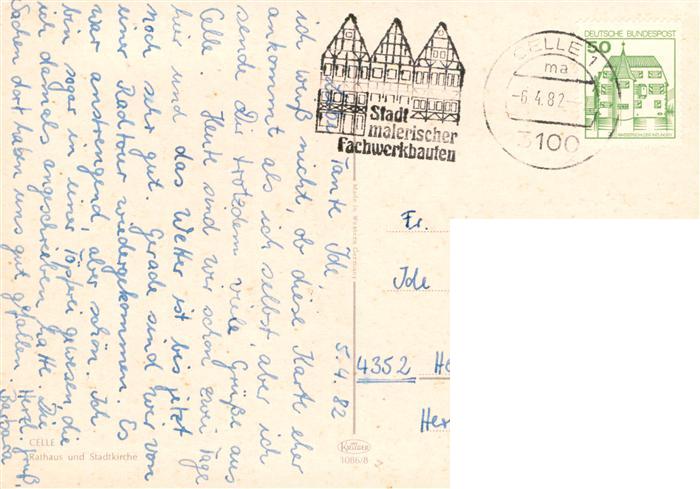 Liebe Tante Ide, 5.4.82
ich weiß nicht, ob diese Karte eher
ankommt als ich selbst, aber ich
sende Dir trotzdem viele Grüße aus
Celle. Heute sind wir schon zwei Tage
hier und das Wetter ist bis jetzt
noch sehr gut. Gerade sind wir von
einer Radtour wiedergekommen. Es
war anstrengend, aber schön. Ich
bin sogar in einer Töpferei gewesen, die
ich damals angeschrieben hatte. Die
Sachen dort haben uns gut gefallen. Herzl. Gruß,
Barbara
Stadt
malerischer
Fachwerkbauten
CELLE 1
ma
-6.4.82-
3100
DEUTSCHE BUNDESPOST
50
WASSERSCHLOSS INZLINGEN
Made in Western Germany
Fr.
Ide
4352 He
Her
CELLE
Rathaus und Stadtkirche
KRÜGER
1086/8